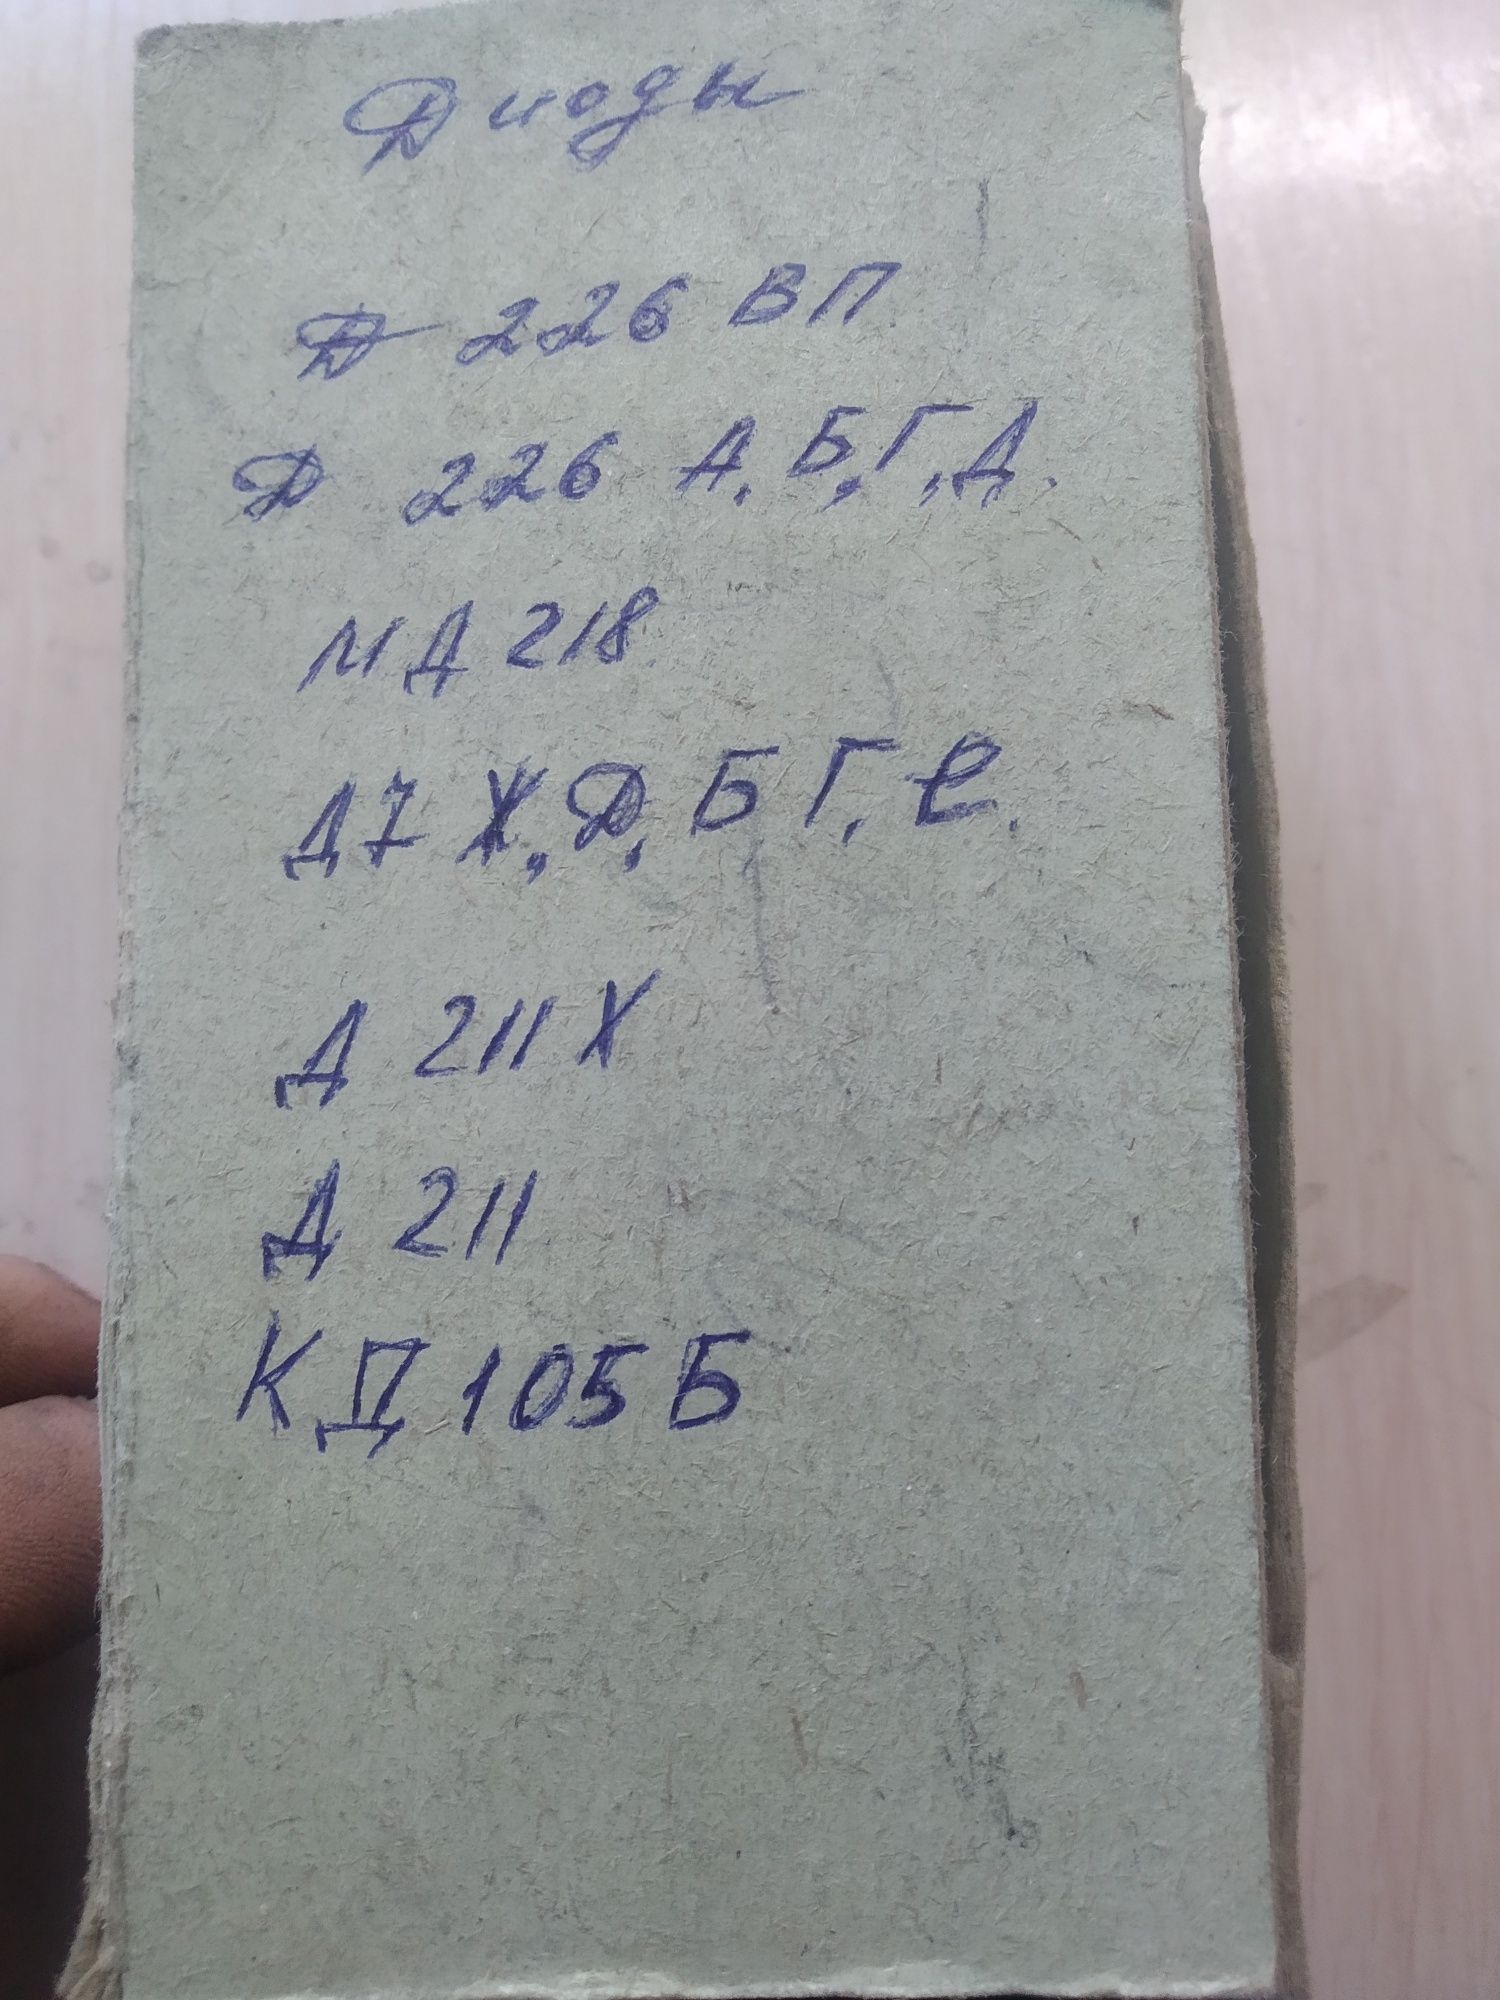 Диоды
Д 226 ВП.
Д 226 А, Б, Г, Д.
МД 218.
Д7 Ж, Д, Б Г, Е.
Д 211 Х
Д 211
КД 105 Б